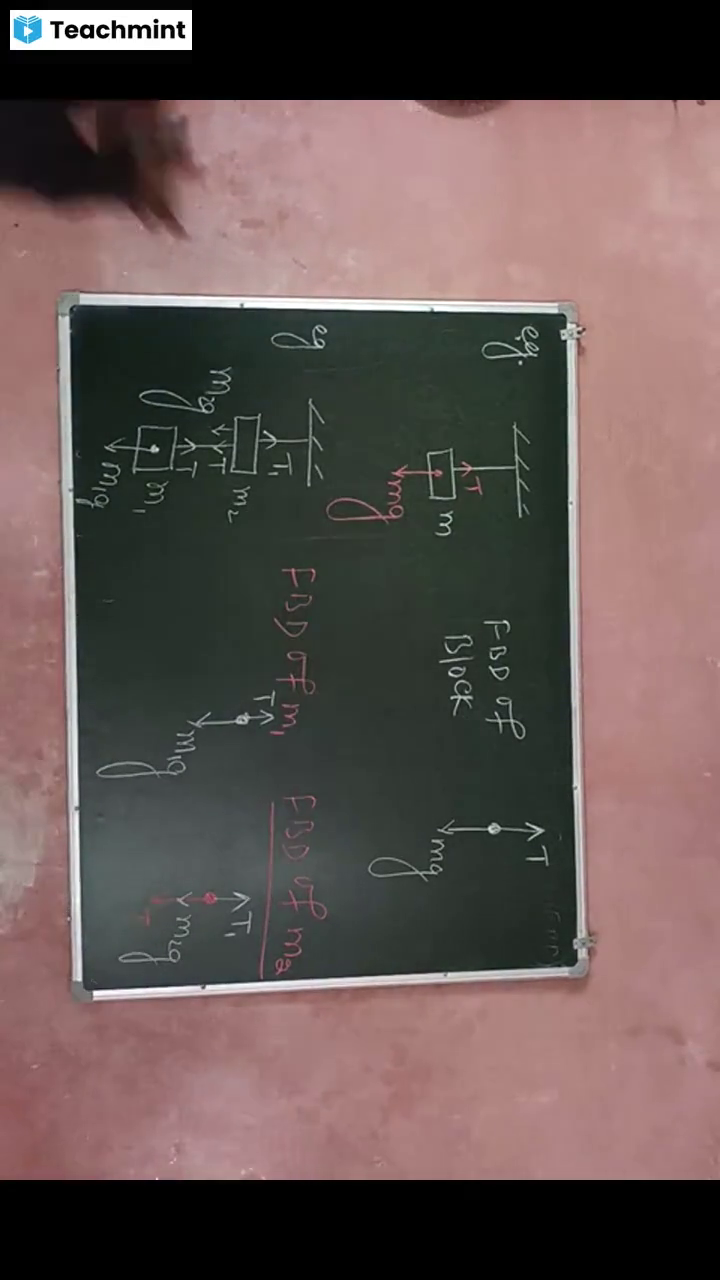 Teachmint
e.g.
T
m
mg
FBD of
Block
T
mg
eg
T₁
m₂
m₂g
T
T
m₁
m₁g
FBD of m₁
T
m₁g
FBD of m₂
T₁
m₂g
T